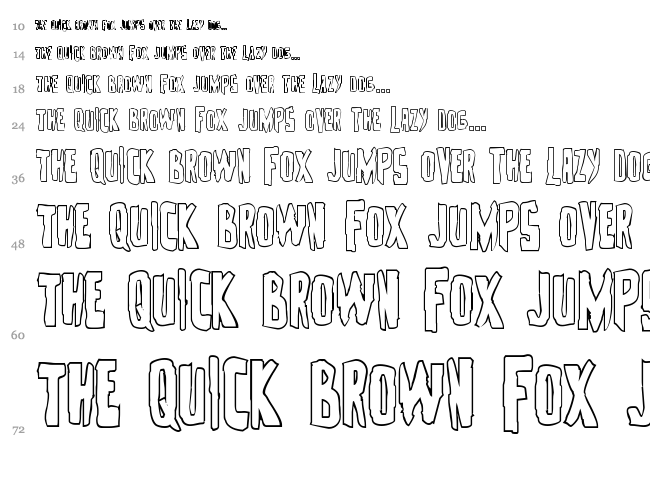 10 the Quick brown Fox jumps over The Lazy dog...
14 the Quick brown Fox jumps over The Lazy dog...
18 the Quick brown Fox jumps over The Lazy dog...
24 the Quick brown Fox jumps over The Lazy dog...
36 the Quick brown Fox jumps over The Lazy dog
48 the Quick brown Fox jumps over
60 the Quick brown Fox jumps
72 the Quick brown Fox j